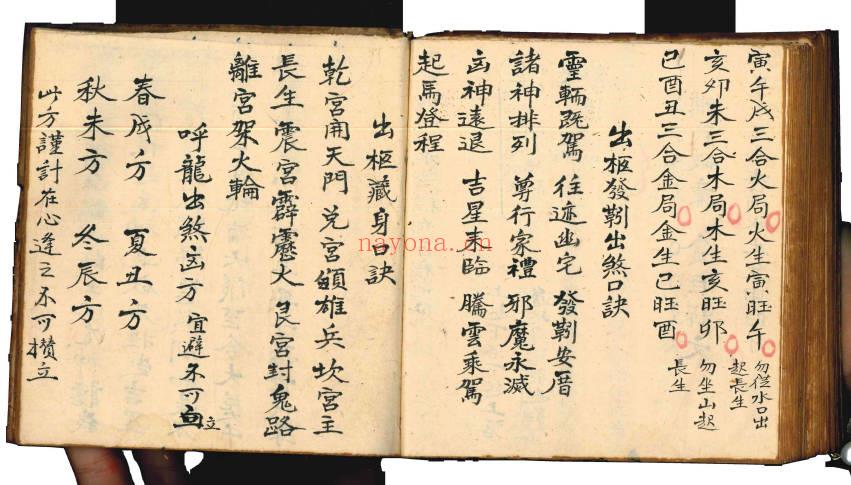 寅午戌三合火局火生寅旺午 勿從水口出
起長生
亥卯未三合木局木生亥旺卯 勿坐山起
長生
巳酉丑三合金局金生巳旺酉
出柩發靷出煞口訣
靈輀既駕 往迹幽宅 發靷安厝
諸神排列 尊行家禮 邪魔永滅
凶神遠退 吉星来臨 騰雲乘駕
起馬登程
出柩藏身口訣
乾宮開天門 兌宮領雄兵 坎宮主
長生 震宮霹靂火 艮宮封鬼路
離宮架火輪
呼龍出煞凶方 宜避不可向立
春戌方 夏丑方
秋未方 冬辰方
此方謹記在心逢之不可攢立
nayona.cn